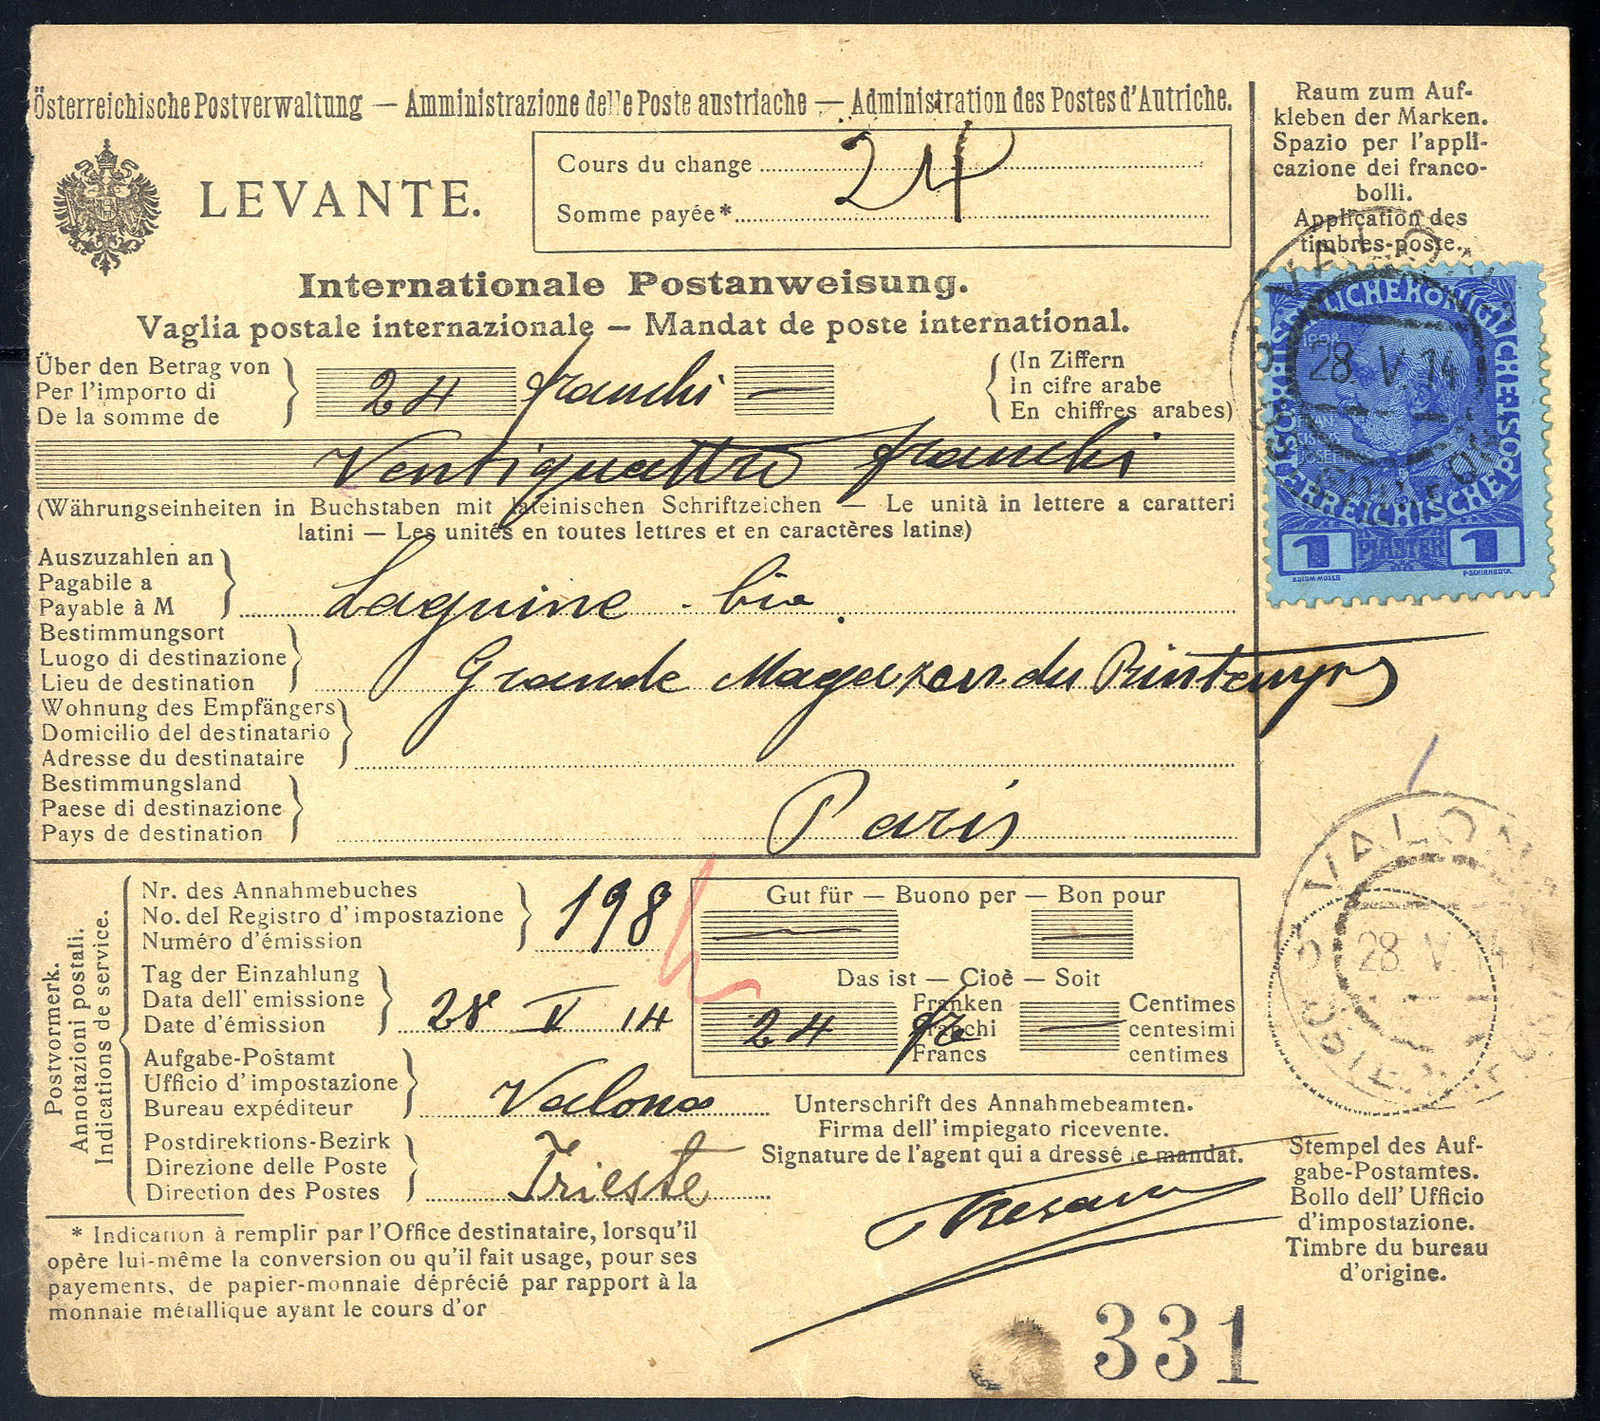 Österreichische Postverwaltung — Amministrazione delle Poste austriache — Administration des Postes d'Autriche.
LEVANTE.
Cours du change 24
Somme payée*
Raum zum Auf-
kleben der Marken.
Spazio per l'appli-
cazione dei franco-
bolli.
Application des
timbres-poste.
Internationale Postanweisung.
Vaglia postale internazionale — Mandat de poste international.
Über den Betrag von
Per l'importo di
De la somme de
24 franchi —
(In Ziffern
In cifre arabe
En chiffres arabes)
Ventiquattro franchi
(Währungseinheiten in Buchstaben mit lateinischen Schriftzeichen — Le unità in lettere a caratteri
latini — Les unités en toutes lettres et en caractères latins)
Auszuzahlen an
Pagabile a
Payable à M
Laguine
Bestimmungsort
Luogo di destinazione
Lieu de destination
Grande Magazen du Printemps
Wohnung des Empfängers
Domicilio del destinatario
Adresse du destinataire
Bestimmungsland
Paese di destinazione
Pays de destination
Paris
KAISERLICHE KÖNIGLICHE ÖSTERREICHISCHE POST
1908
FRAN
CISCVS
JOSEF I
1 PIASTER 1
KOLOM. MOSER
F. SCHIRNBÖCK
VALONA
28. V. 14
Postvormerk.
Annotazioni postali.
Indications de service.
Nr. des Annahmebuches
No. del Registro d'impostazione
Numéro d'émission
198
Tag der Einzahlung
Data dell'emissione
Date d'émission
28 V 14
Aufgabe-Postamt
Ufficio d'impostazione
Bureau expéditeur
Valona
Postdirektions-Bezirk
Direzione delle Poste
Direction des Postes
Trieste
Gut für — Buono per — Bon pour
Das ist — Cioè — Soit
24 fr
Franken
Franchi
Francs
Centimes
centesimi
centimes
Unterschrift des Annahmebeamten.
Firma dell'impiegato ricevente.
Signature de l'agent qui a dressé le mandat.
VALONA
28. V. 14
Stempel des Auf-
gabe-Postamtes.
Bollo dell'Ufficio
d'impostazione.
Timbre du bureau
d'origine.
* Indication à remplir par l'Office destinataire, lorsqu'il
opère lui-même la conversion ou qu'il fait usage, pour ses
payements, de papier-monnaie déprécié par rapport à la
monnaie métallique ayant le cours d'or
331